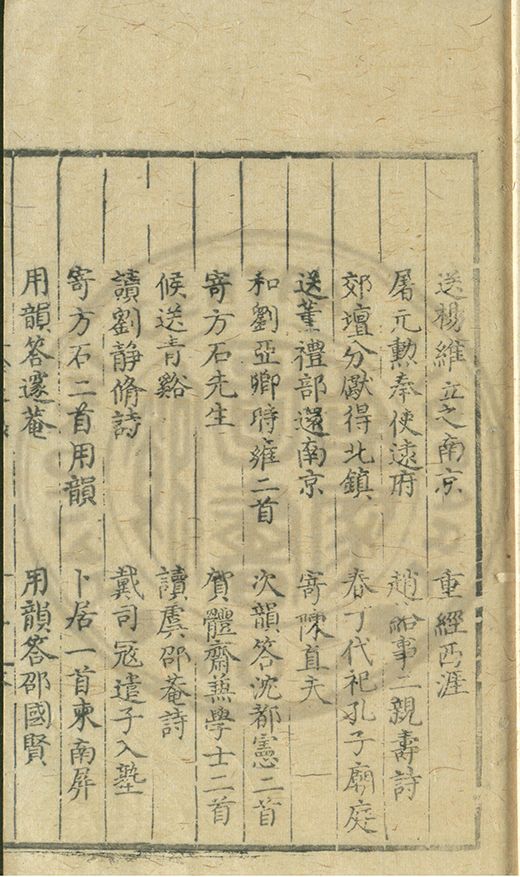 送楊維立之南京　重經西涯
屠元勳奉使遼府　趙給事二親壽詩
郊壇分獻得北鎮　春丁代祀孔子廟庭
送董禮部還南京　寄陳直夫
和劉亞卿時雍二首　次韻答沈都憲二首
寄方石先生　賀體齋蕪學士二首
候送青谿　讀虞邵菴詩
讀劉靜脩詩　戴司冦遣子入塾
寄方石二首用韻　卜居一首柬南屏
用韻答邃菴　用韻答邵國賢